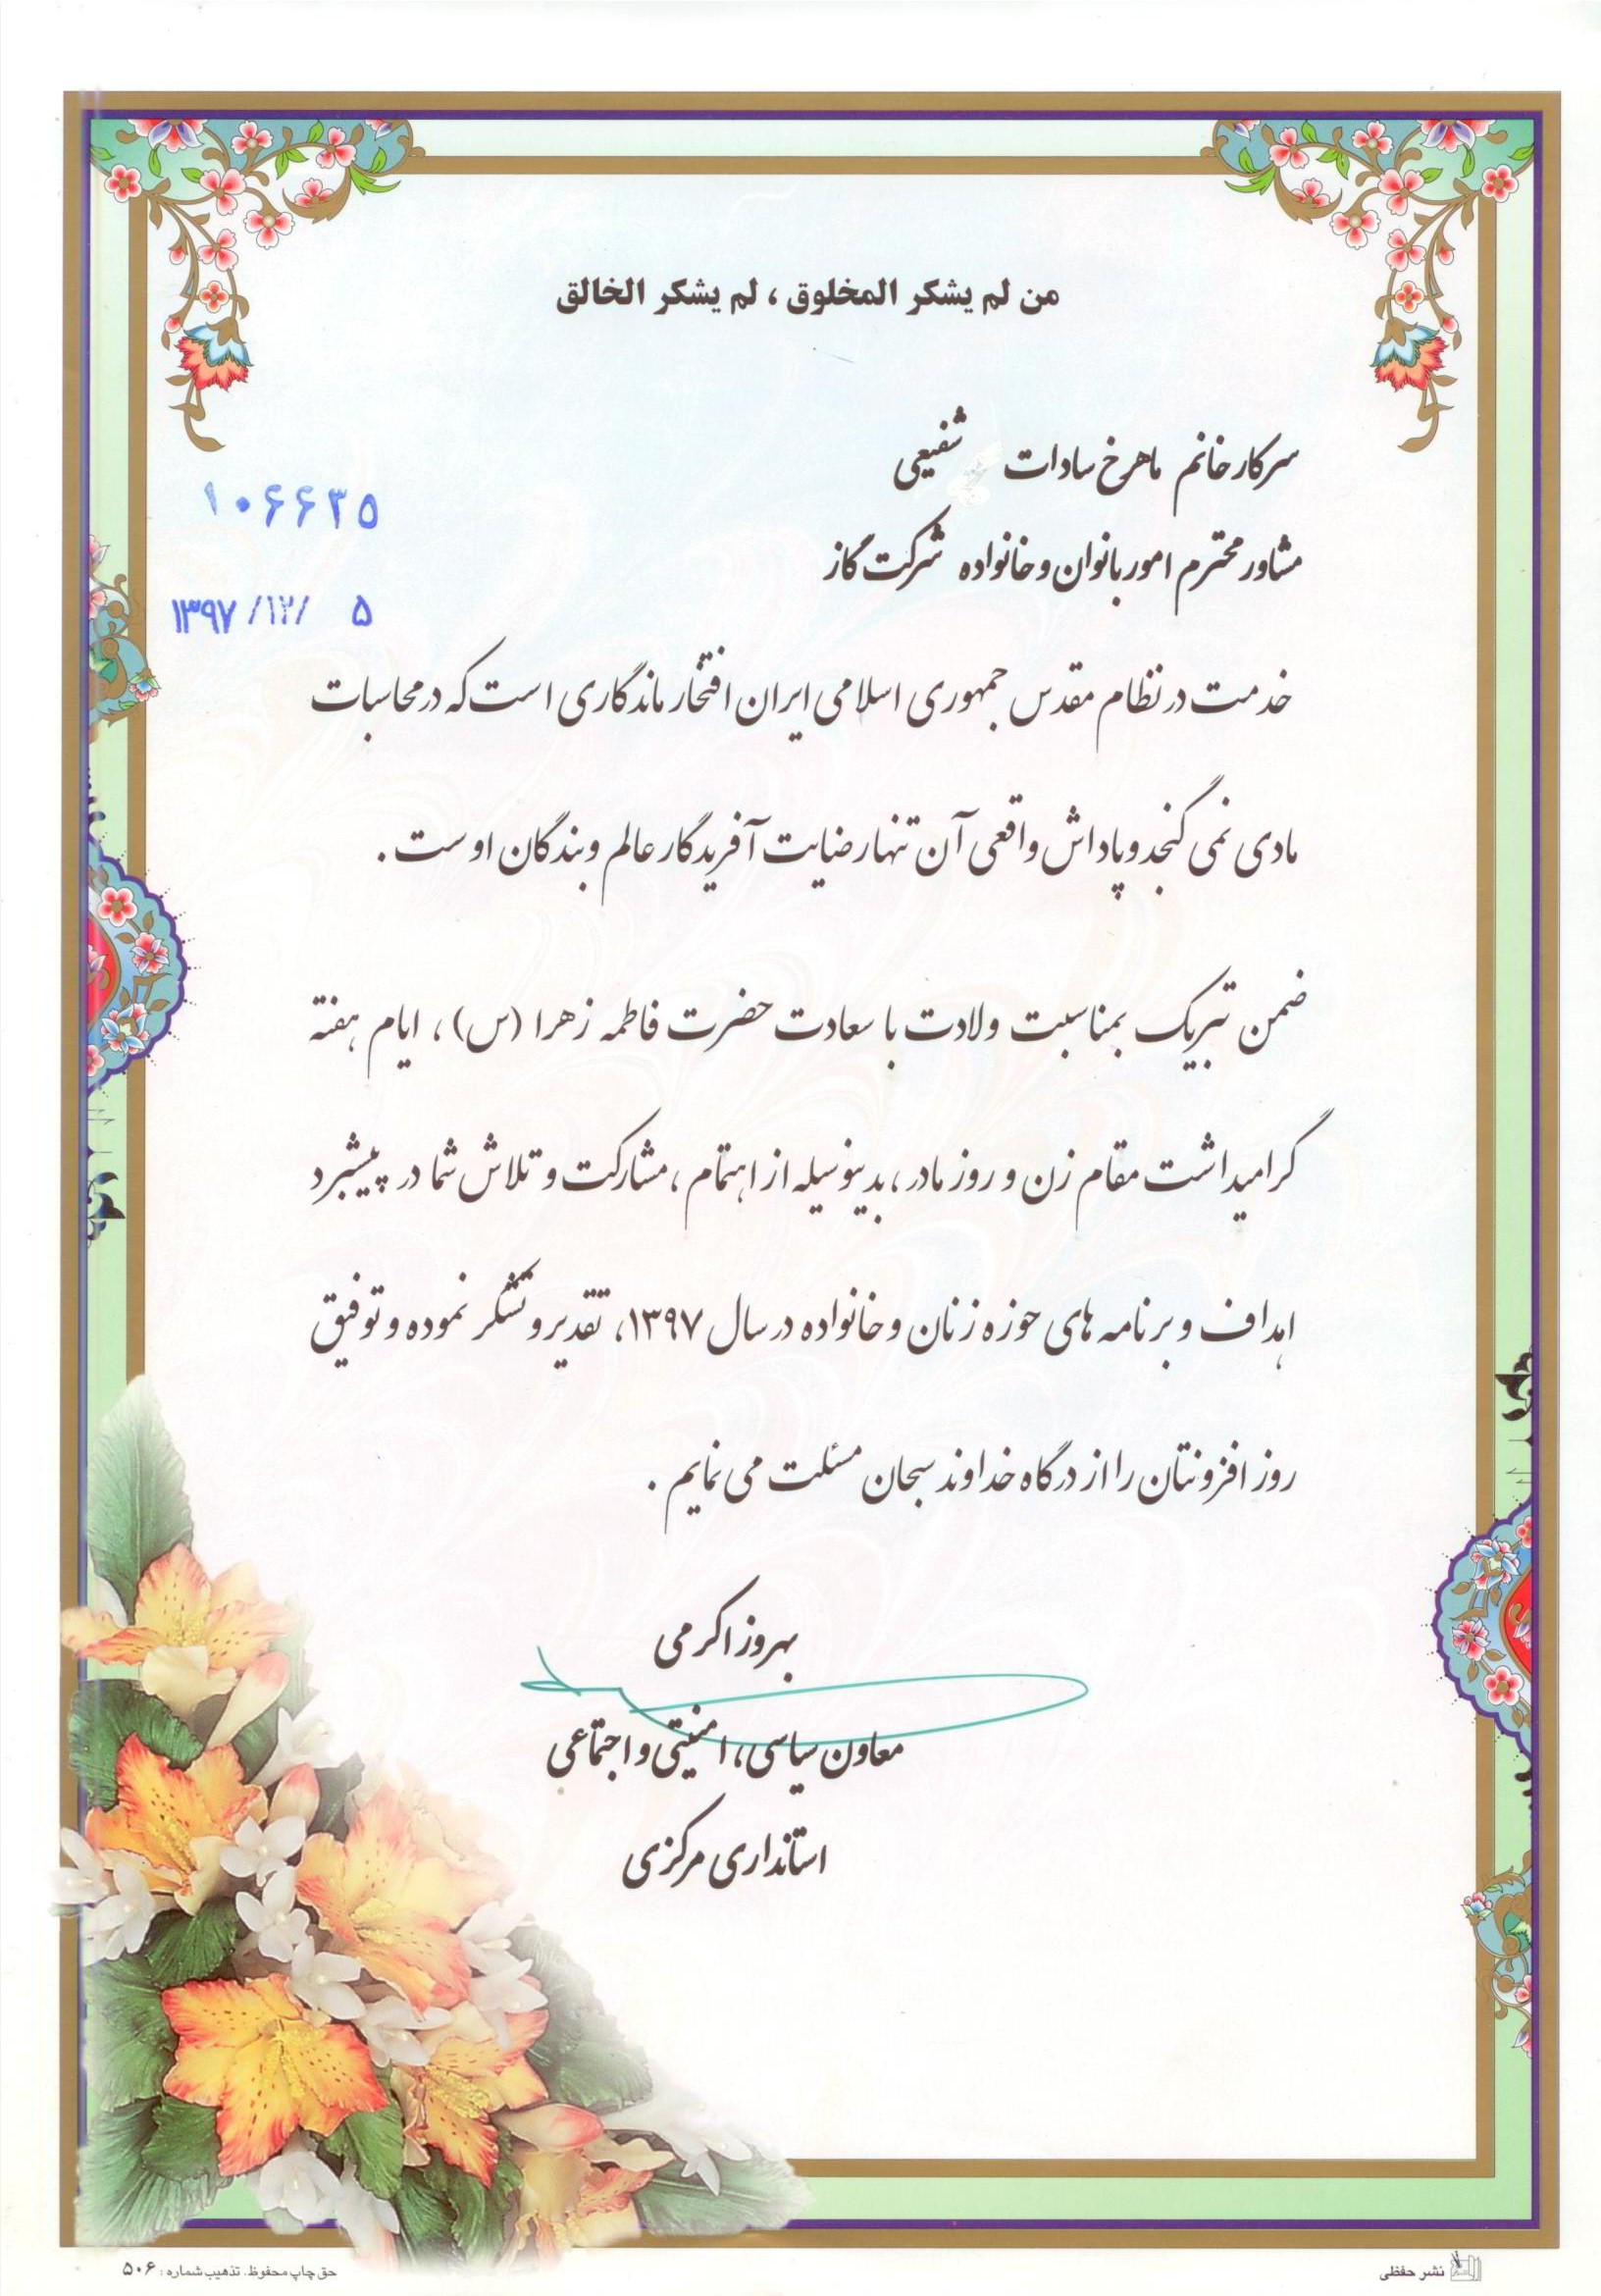 من لم یشکر المخلوق ، لم یشکر الخالق
سرکار خانم ماهرخ سادات شفیعی
۱۰۶۶۳۵
مشاور محترم امور بانوان و خانواده شرکت گاز
۱۳۹۷/۱۲/ ۵
خدمت در نظام مقدس جمهوری اسلامی ایران افتخار ماندگاری است که در محاسبات
مادی نمی گنجد و پاداش واقعی آن تنها رضایت آفریدگار عالم و بندگان اوست .
ضمن تبریک بمناسبت ولادت با سعادت حضرت فاطمه زهرا (س) ، ایام هفته
گرامیداشت مقام زن و روز مادر ، بدینوسیله از اهتمام ، مشارکت و تلاش شما در پیشبرد
اهداف و برنامه های حوزه زنان و خانواده در سال ۱۳۹۷، تقدیر و تشکر نموده و توفیق
روز افزونتان را از درگاه خداوند سبحان مسئلت می نمایم .
بهروز اکرمی
معاون سیاسی، امنیتی و اجتماعی
استانداری مرکزی
نشر حفظی
حق چاپ محفوظ. تذهیب شماره : ۵۰۶